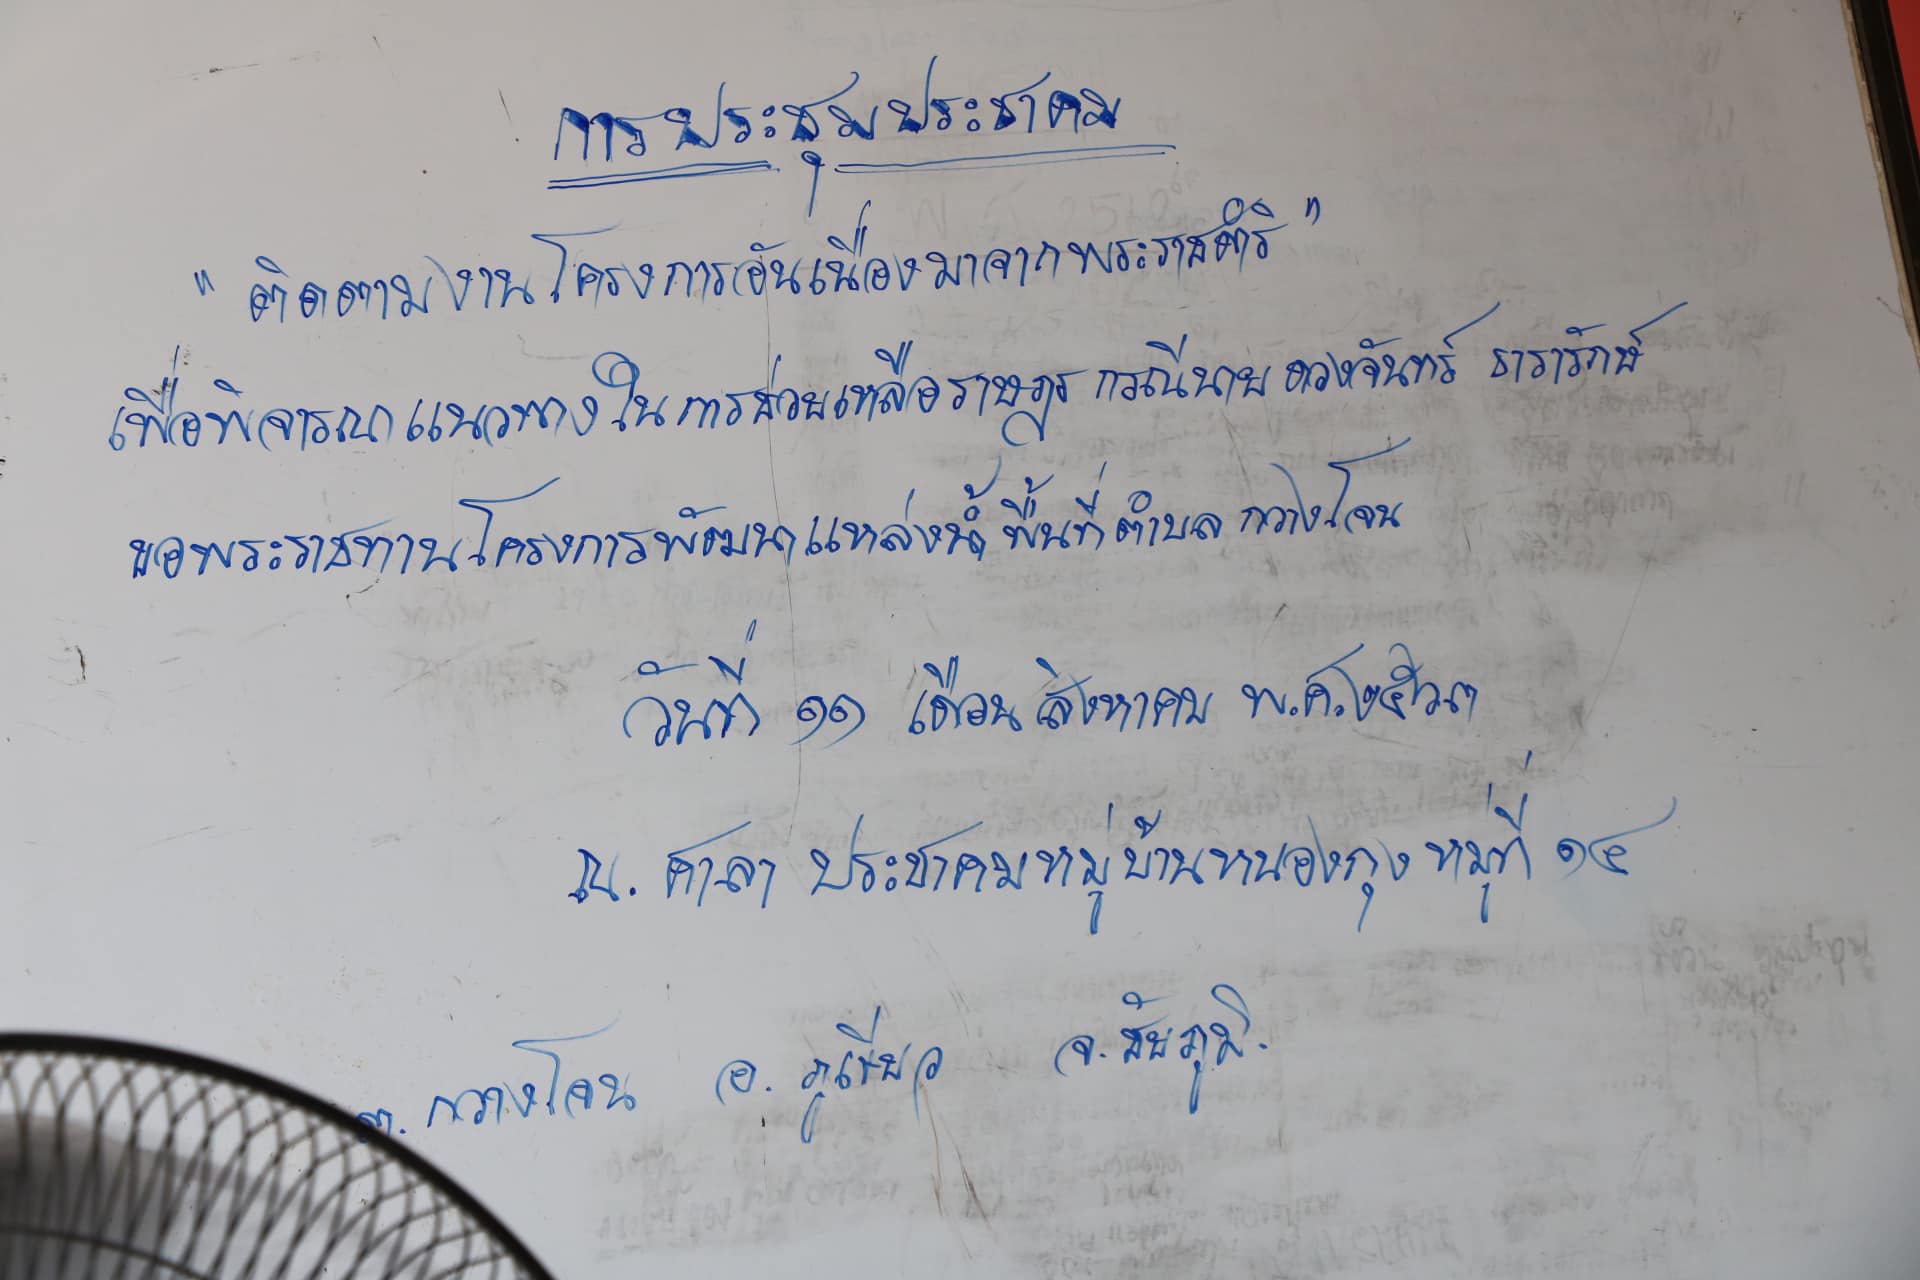 การประชุมประชาคม
" ติดตามงานโครงการอันเนื่องมาจากพระราชดำริ "
เพื่อพิจารณาแนวทางในการช่วยเหลือราษฎร กรณีนาย ดวงจันทร์ ธารารักษ์
ขอพระราชทานโครงการพัฒนาแหล่งน้ำ พื้นที่ ตำบล กวางโจน
วันที่ ๑๑ เดือน สิงหาคม พ.ศ.
ณ. ศาลา ประชาคมหมู่บ้านหนองกุง หมู่ที่ ๑๔
ต. กวางโจน อ. ภูเขียว จ. ชัยภูมิ.